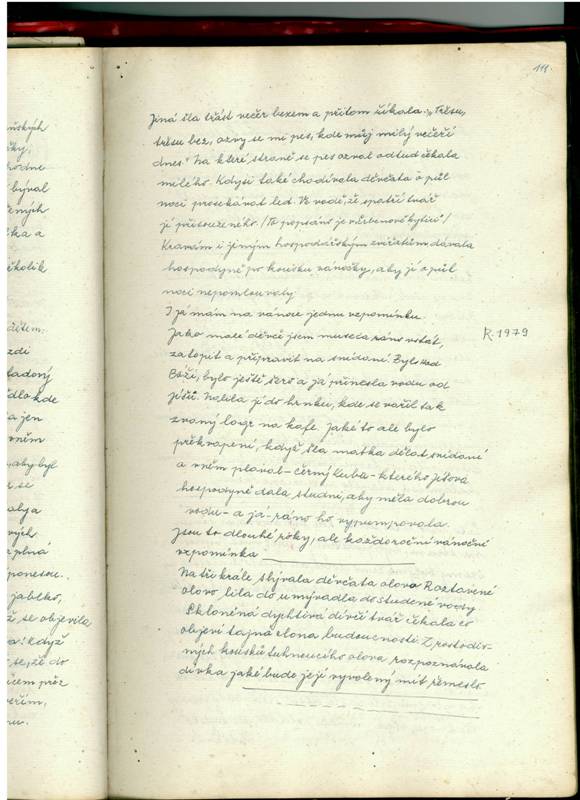 ňských
žky,
hodne
býval
ených
tka a
ěkolik
dítem.
zdi
tadový
ídlo kde
a jen
vním
aby byl
r se
abya
vých
plná
ponesou.
jablko,
ž se objevila
a! když
se, že do
čem přez
veřím,
nu.
111.
Jiná šla třást večer bezem a přitom říkala: „Třesu,
třesu bez, ozvy se mi pes, kde můj milý večeří
dnes." Na které straně se pes ozval odtud čekala
milého. Kdysi také chodívala děvčata o půl
noci prosekávat led. Ve vodě, že spatří tvář
jí přisouzeného. /To popsáno je v Erbenově kytici/
Kravám i jiným hospodářským zvířatům dávala
hospodyně po kousku vánočky, aby ji o půl
noci nepomlouvaly.
I já mám na vánoce jednu vzpomínku.
Jako malé děvče jsem musela ráno vstát,
zatopit a připravit na snídani. Bylo
Boží, bylo ještě šero a já přinesla vodu od
Nalila ji do hrnku, kde se vařil tak
zvaný logr na kafe. Jaké to ale bylo
překvapení, když šla matka dělat snídani
a v něm plaval – černý kuba – kterého
hospodyně dala studni, aby měla dobrou
vodu – a já – ráno ho vypumpovala.
Jsou to dlouhé roky, ale každoroční vánoční
vzpomínka.
R. 1979
Na tři krále slývala děvčata olovo. Roztavené
olovo lila do umývadla do studené vody.
Skloněná dychtivá dívčí tvář čekala co
objeví tajná clona budoucnosti. Z prostodiv-
ných kousků tuhnoucího olova rozpoznávala
dívka jaké bude její vyvolený mít řemeslo.